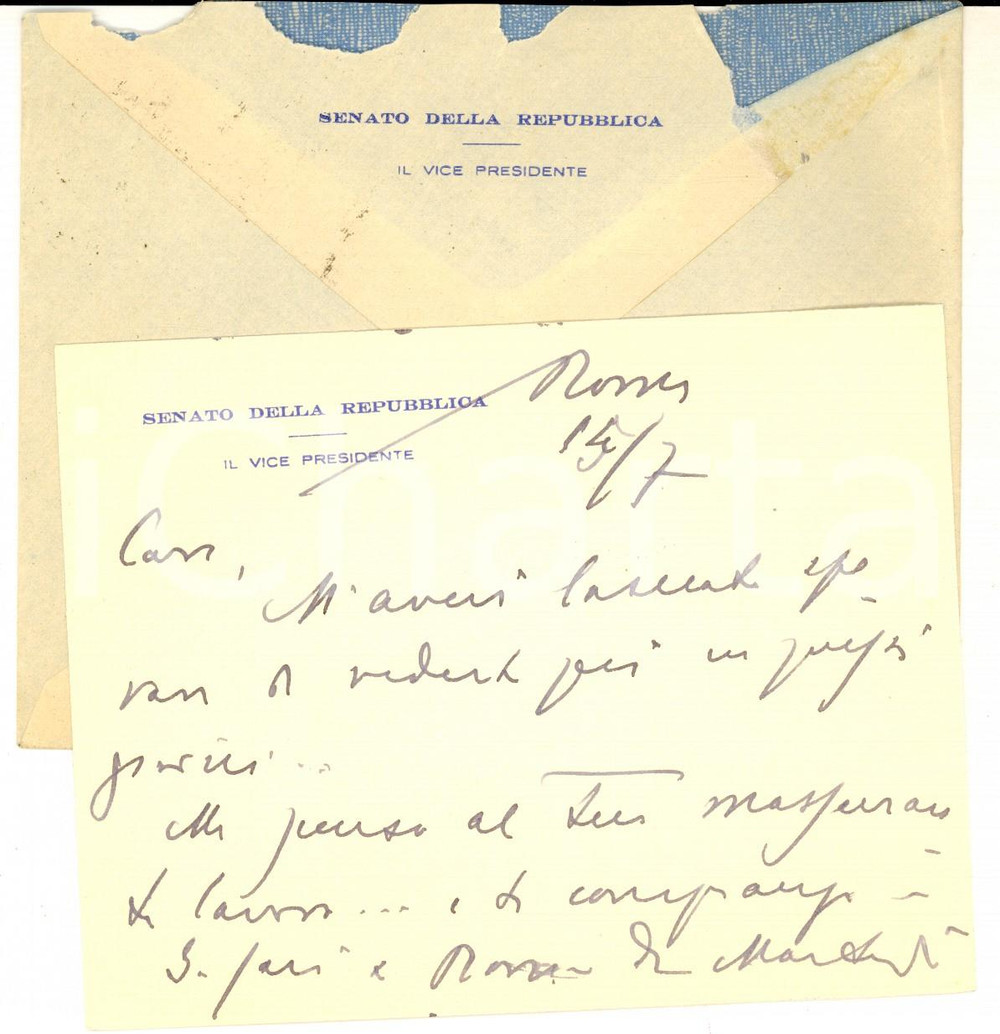 SENATO DELLA REPUBBLICA
IL VICE PRESIDENTE
SENATO DELLA REPUBBLICA
IL VICE PRESIDENTE
Roma
15/7
Caro,
M'avevi lasciato spe-
rare di vederti qui in questi
giorni...
Ma penso al tuo massacran-
te lavoro... e ti compiango -
Se sarò a Roma da Martedì
iCharta